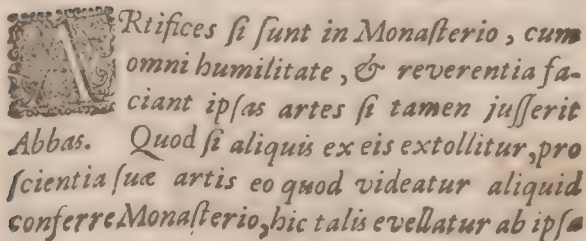 ARtifices ſi ſunt in Monaſterio, cum
omni humilitate, & reverentia fa-
ciant ipſas artes ſi tamen juſſerit
Abbas. Quod ſi aliquis ex eis extollitur, pro
ſcientia ſuæ artis eo quod videatur aliquid
conferre Monaſterio, hic talis evellatur ab ipſa